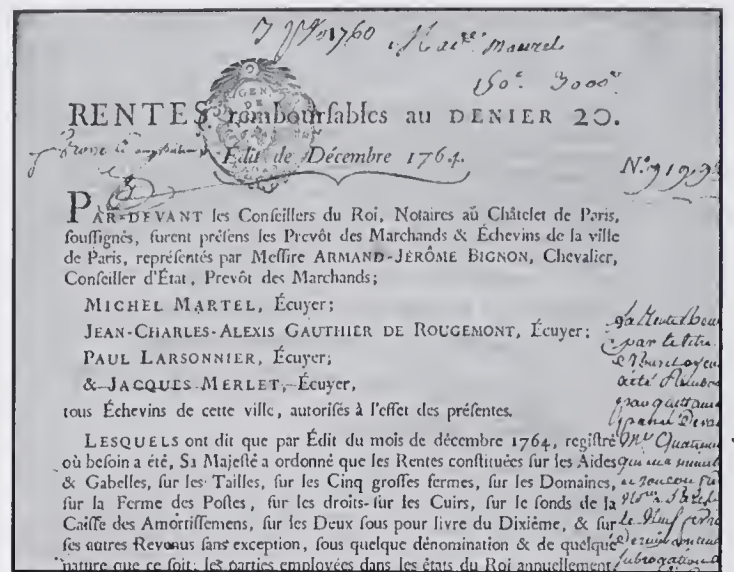 1760 maurel
150.# 3000.#
RENTES rembourſables au DENIER 20.
Édit de Décembre 1764.
N.º 91993
PAR-DEVANT les Conſeillers du Roi, Notaires aû Châtelet de Paris,
ſouſſignés, furent préſens les Prevôt des Marchands & Échevins de la ville
de Paris, repréſentés par Meſſire ARMAND-JÉRÔME BIGNON, Chevalier,
Conſeiller d'État, Prevôt des Marchands;
MICHEL MARTEL, Écuyer;
JEAN-CHARLES-ALEXIS GAUTHIER DE ROUGEMONT, Écuyer;
PAUL LARSONNIER, Écuyer;
& JACQUES MERLET, Écuyer,
tous Échevins de cette ville, autoriſés à l'effet des préſentes.
LESQUELS ont dit que par Édit du mois de décembre 1764, regiſtré
où beſoin a été, SA Majeſté a ordonné que les Rentes conſtituées ſur les Aides
& Gabelles, ſur les Tailles, ſur les Cinq groſſes fermes, ſur les Domaines,
ſur la Ferme des Poſtes, ſur les droits ſur les Cuirs, ſur le fonds de la
Caiſſe des Amortiſſemens, ſur les Deux ſous pour livre du Dixième, & ſur
ſes autres Revenus ſans exception, ſous quelque dénomination & de quelque
nature que ce ſoit; les parties employées dans les états du Roi annuellement
la Rente
par le titre
a été
par quittance
subrogation